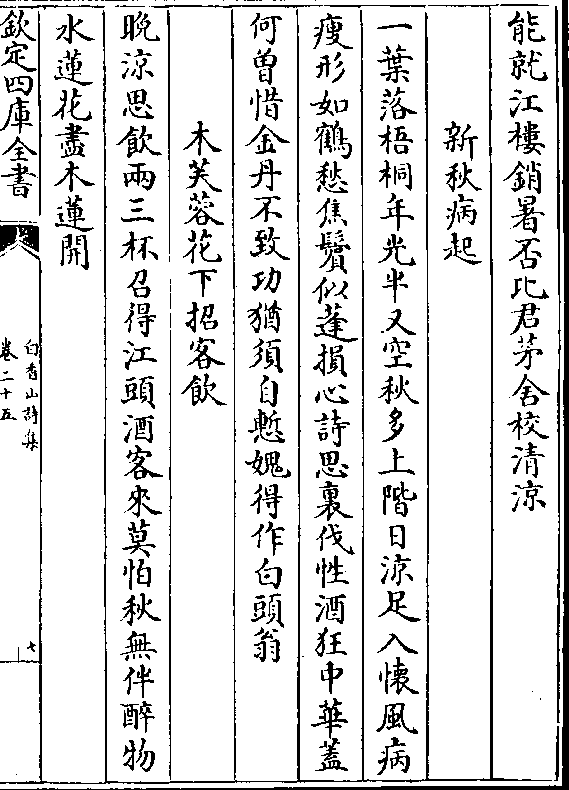 能就江樓銷暑否比君茅舍校清涼
新秋病起
一葉落梧桐年光半又空秋多上階日涼足入懐風病
瘦形如鶴愁焦鬢似蓬損心詩思裏伐性酒狂中華蓋
何曽惜金丹不致功猶須自慙媿得作白頭翁
木芙蓉花下招客飲
晩涼思飲兩三杯召得江頭酒客來莫怕秋無伴醉物
水蓮花盡木蓮開
欽定四庫全書
白香山詩集
卷二十五
七